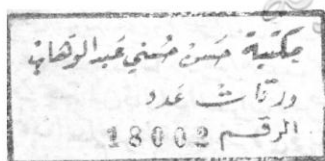 مكتبة حسن حسني عبد الوهاب
ورقات عدد
الرقم 18002